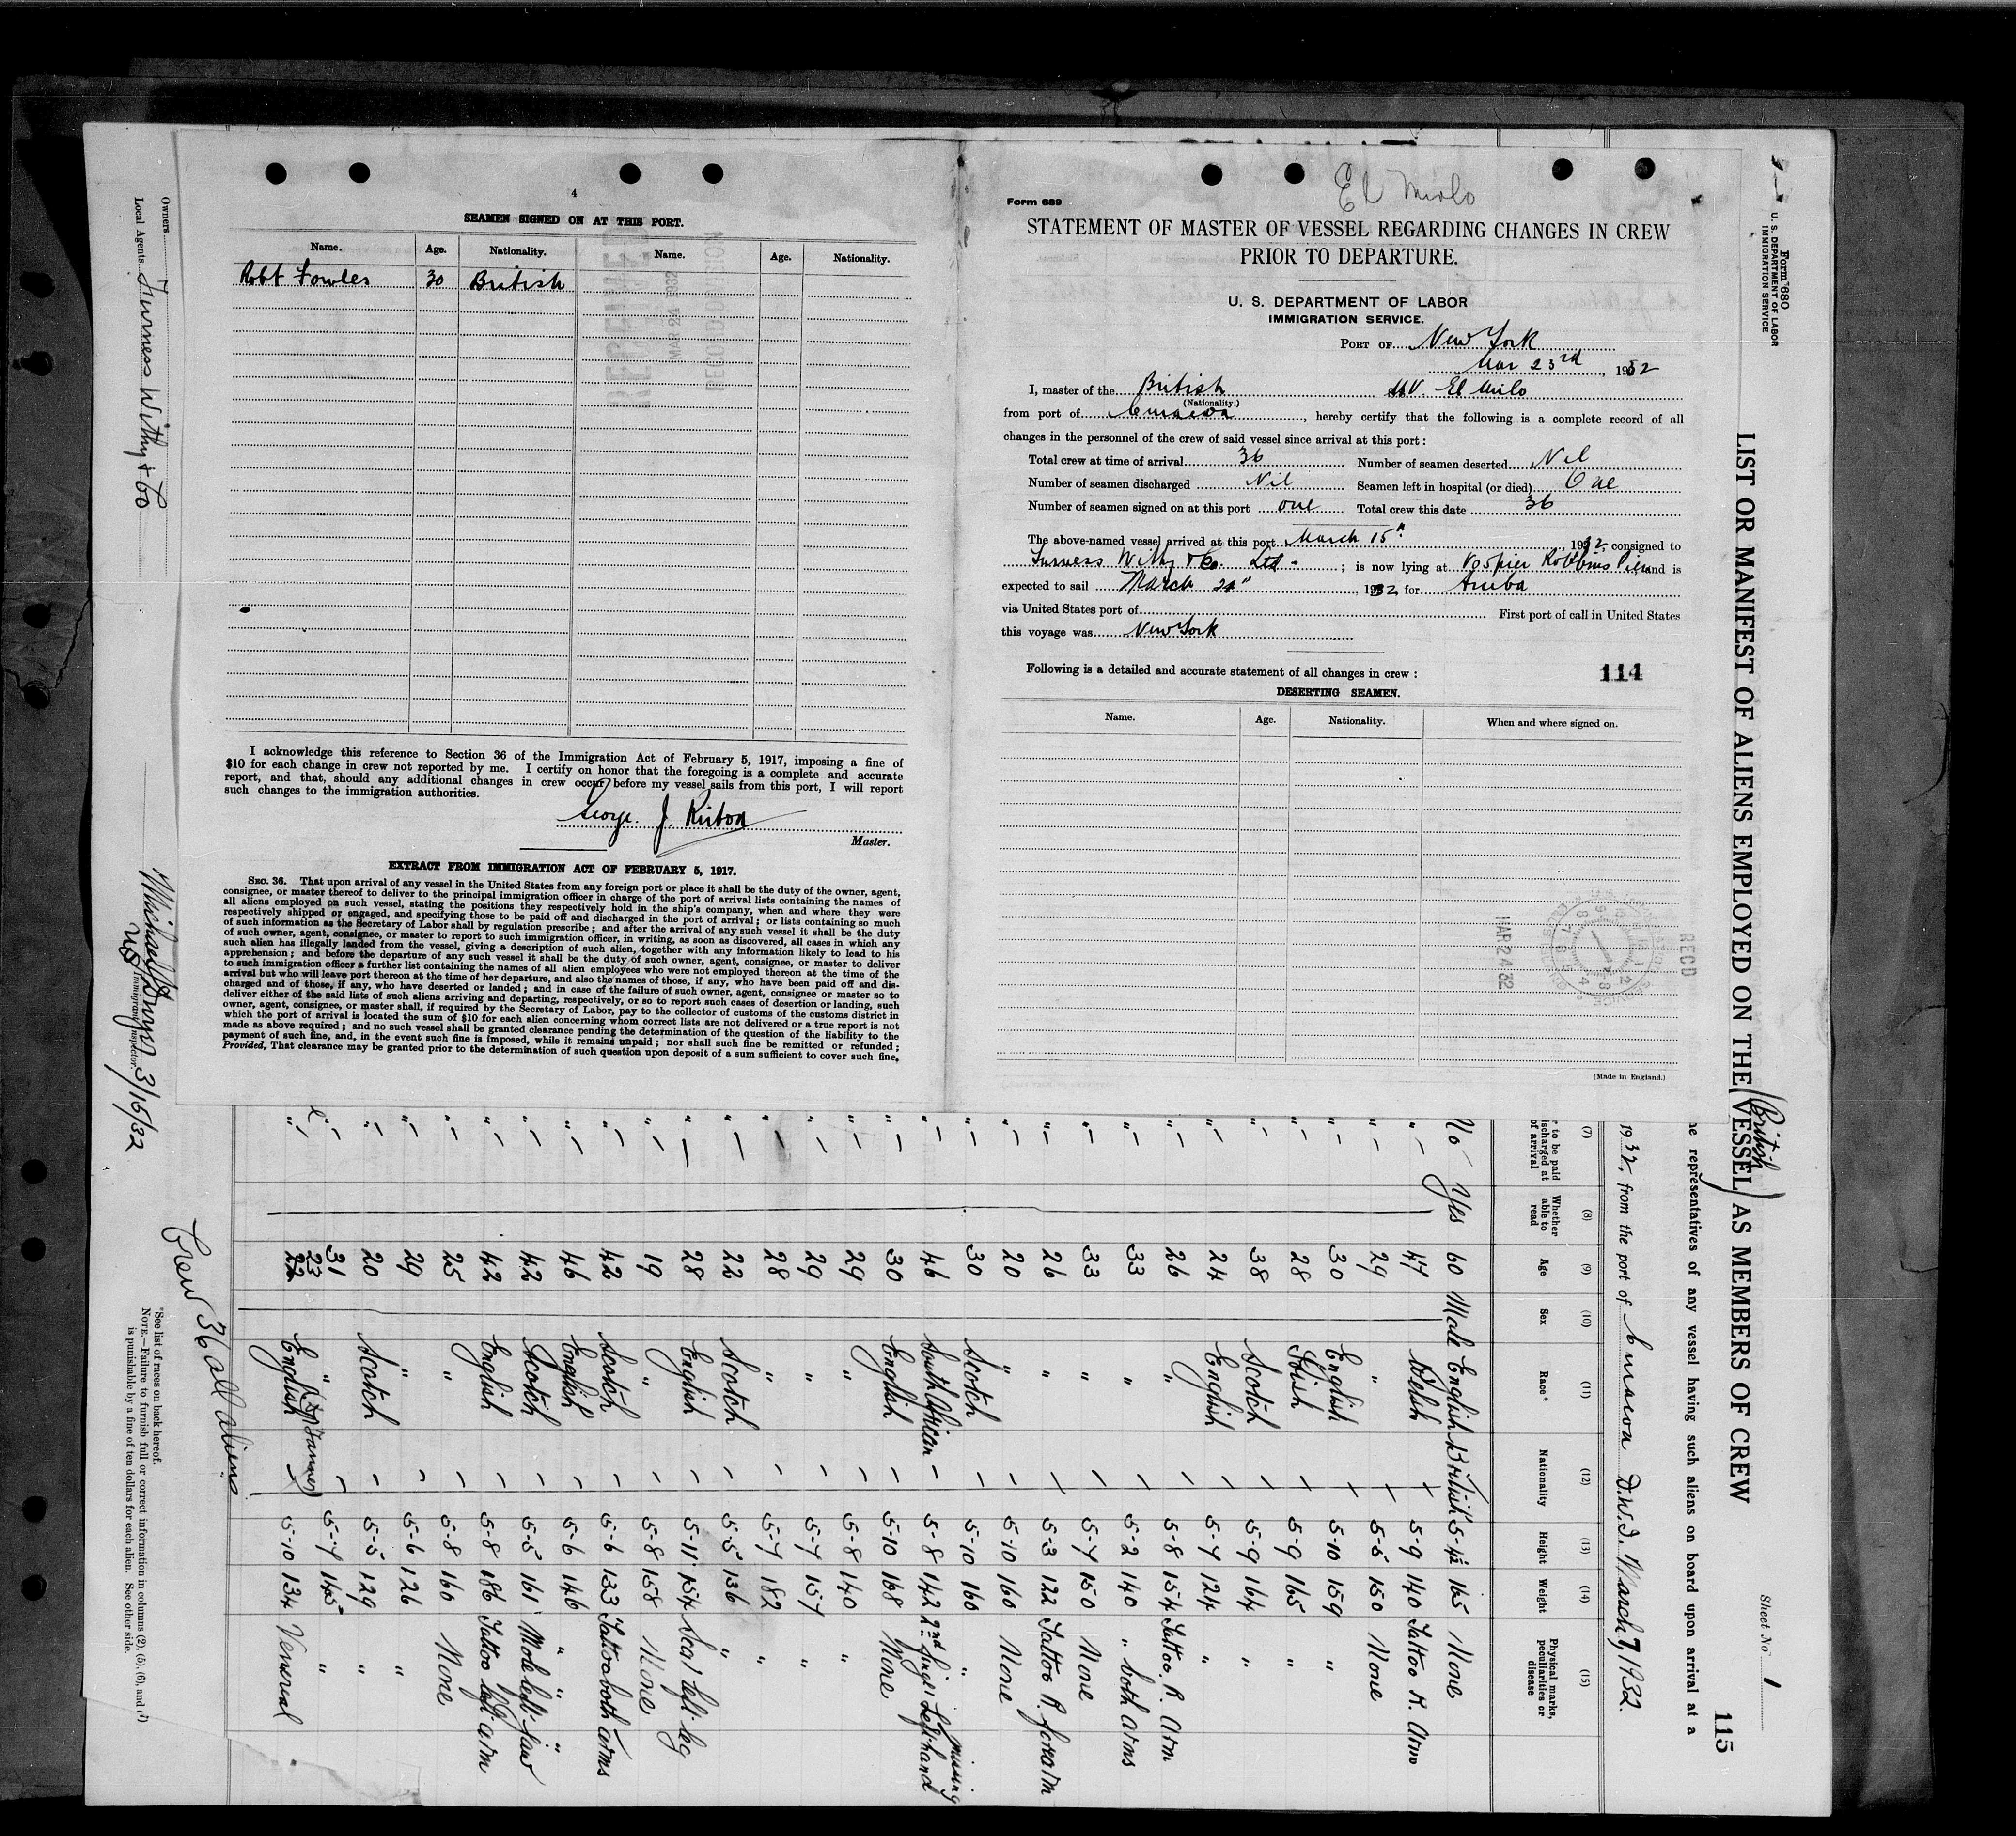 4
SEAMEN SIGNED ON AT THIS PORT.
Name. Age. Nationality. Name. Age. Nationality.
Robt Fowler 30 British
MAR 24 1932
I acknowledge this reference to Section 36 of the Immigration Act of February 5, 1917, imposing a fine of
$10 for each change in crew not reported by me. I certify on honor that the foregoing is a complete and accurate
report, and that, should any additional changes in crew occur before my vessel sails from this port, I will report
such changes to the immigration authorities.
George J.
Master.
EXTRACT FROM IMMIGRATION ACT OF FEBRUARY 5, 1917.
SEC. 36. That upon arrival of any vessel in the United States from any foreign port or place it shall be the duty of the owner, agent,
consignee, or master thereof to deliver to the principal immigration officer in charge of the port of arrival lists containing the names of
all aliens employed on such vessel, stating the positions they respectively hold in the ship's company, when and where they were
respectively shipped or engaged, and specifying those to be paid off and discharged in the port of arrival; or lists containing so much
of such information as the Secretary of Labor shall by regulation prescribe; and after the arrival of any such vessel it shall be the duty
of such owner, agent, consignee, or master to report to such immigration officer, in writing, as soon as discovered, all cases in which any
such alien has illegally landed from the vessel, giving a description of such alien, together with any information likely to lead to his
apprehension; and before the departure of any such vessel it shall be the duty of such owner, agent, consignee, or master to deliver
to such immigration officer a further list containing the names of all alien employees who were not employed thereon at the time of the
arrival but who will leave port thereon at the time of her departure, and also the names of those, if any, who have been paid off and dis-
charged and of those, if any, who have deserted or landed; and in case of the failure of such owner, agent, consignee or master so to
deliver either of the said lists of such aliens arriving and departing, respectively, or so to report such cases of desertion or landing, such
owner, agent, consignee, or master shall, if required by the Secretary of Labor, pay to the collector of customs of the customs district in
which the port of arrival is located the sum of $10 for each alien concerning whom correct lists are not delivered or a true report is not
made as above required; and no such vessel shall be granted clearance pending the determination of the question of the liability to the
payment of such fine, and, in the event such fine is imposed, while it remains unpaid; nor shall such fine be remitted or refunded;
Provided, That clearance may be granted prior to the determination of such question upon deposit of a sum sufficient to cover such fine,
El Mirlo
Form 689
STATEMENT OF MASTER OF VESSEL REGARDING CHANGES IN CREW
PRIOR TO DEPARTURE.
U. S. DEPARTMENT OF LABOR
IMMIGRATION SERVICE.
PORT OF New York
Mar 23rd, 1932
I, master of the British M.V. El Mirlo
(Nationality.)
from port of Curacoa, hereby certify that the following is a complete record of all
changes in the personnel of the crew of said vessel since arrival at this port:
Total crew at time of arrival 36 Number of seamen deserted Nil
Number of seamen discharged Nil Seamen left in hospital (or died) One
Number of seamen signed on at this port one Total crew this date 36
The above-named vessel arrived at this port March 15th, 1932, consigned to
Furness Withy & Co. Ltd; is now lying at Robbins and is
expected to sail March 24", 1932 for Aruba
via United States port of First port of call in United States
this voyage was New York
Following is a detailed and accurate statement of all changes in crew: 114
DESERTING SEAMEN.
Name. Age. Nationality. When and where signed on.
MAR 24 32
REC'D
(Made in England.)
Form 680
U. S. DEPARTMENT OF LABOR
IMMIGRATION SERVICE
Sheet No. 1
115
LIST OR MANIFEST OF ALIENS EMPLOYED ON THE (British VESSEL) AS MEMBERS OF CREW
representatives of any vessel having such aliens on board upon arrival at a
1932, from the port of Curacoa D.W.I. March 7 1932.
(7) (8) (9) (10) (11) (12) (13) (14) (15)
to be paid discharged at of arrival Whether able to read Age Sex Race* Nationality Height Weight Physical marks, peculiarities or disease
No Yes 60 Male English British 5-4½ 165 None
" 47 Welsh 5-9 140 Tattoo R. Arm
" 29 " 5-5 150 None
30 English 5-10 159 "
" 28 Irish 5-9 165 "
" 38 Scotch 5-9 164 "
" 24 English 5-7 124 "
" 26 " 5-8 154 Tattoo R. Arm
" 33 " 5-2 140 " both arms
" 33 " 5-7 150 None
" 26 " 5-3 122 Tattoo R. forearm
" 20 " 5-10 160 None
" 30 Scotch 5-10 160 "
" 46 South African 5-8 142 2nd finger Left hand missing
" 30 English 5-10 168 None
" 29 " 5-8 140 "
" 29 " 5-7 157 "
" 28 " 5-7 182 "
" 22 Scotch 5-5 136 "
" 28 English 5-11 154 Scar left leg
" 19 " 5-8 158 None
" 42 Scotch 5-6 133 Tattoo both arms
" 46 English 5-6 146 " "
" 42 Scotch 5-5 161 Mole left jaw
" 42 English 5-8 186 Tattoo left arm
" 25 " 5-8 160 None
" 29 " 5-6 126 "
" 20 Scotch 5-5 129 "
31 " 5-7 145 "
" 23 22 English 5-10 134 Venereal
Crew 36 all aliens
*See list of races on back hereof.
NOTE.—Failure to furnish full or correct information in columns (2), (5), (6), and (7)
is punishable by a fine of ten dollars for each alien. See other side.
Owners
Local Agents Furness Withy & Co
Immigrant Inspector.
3/16/32